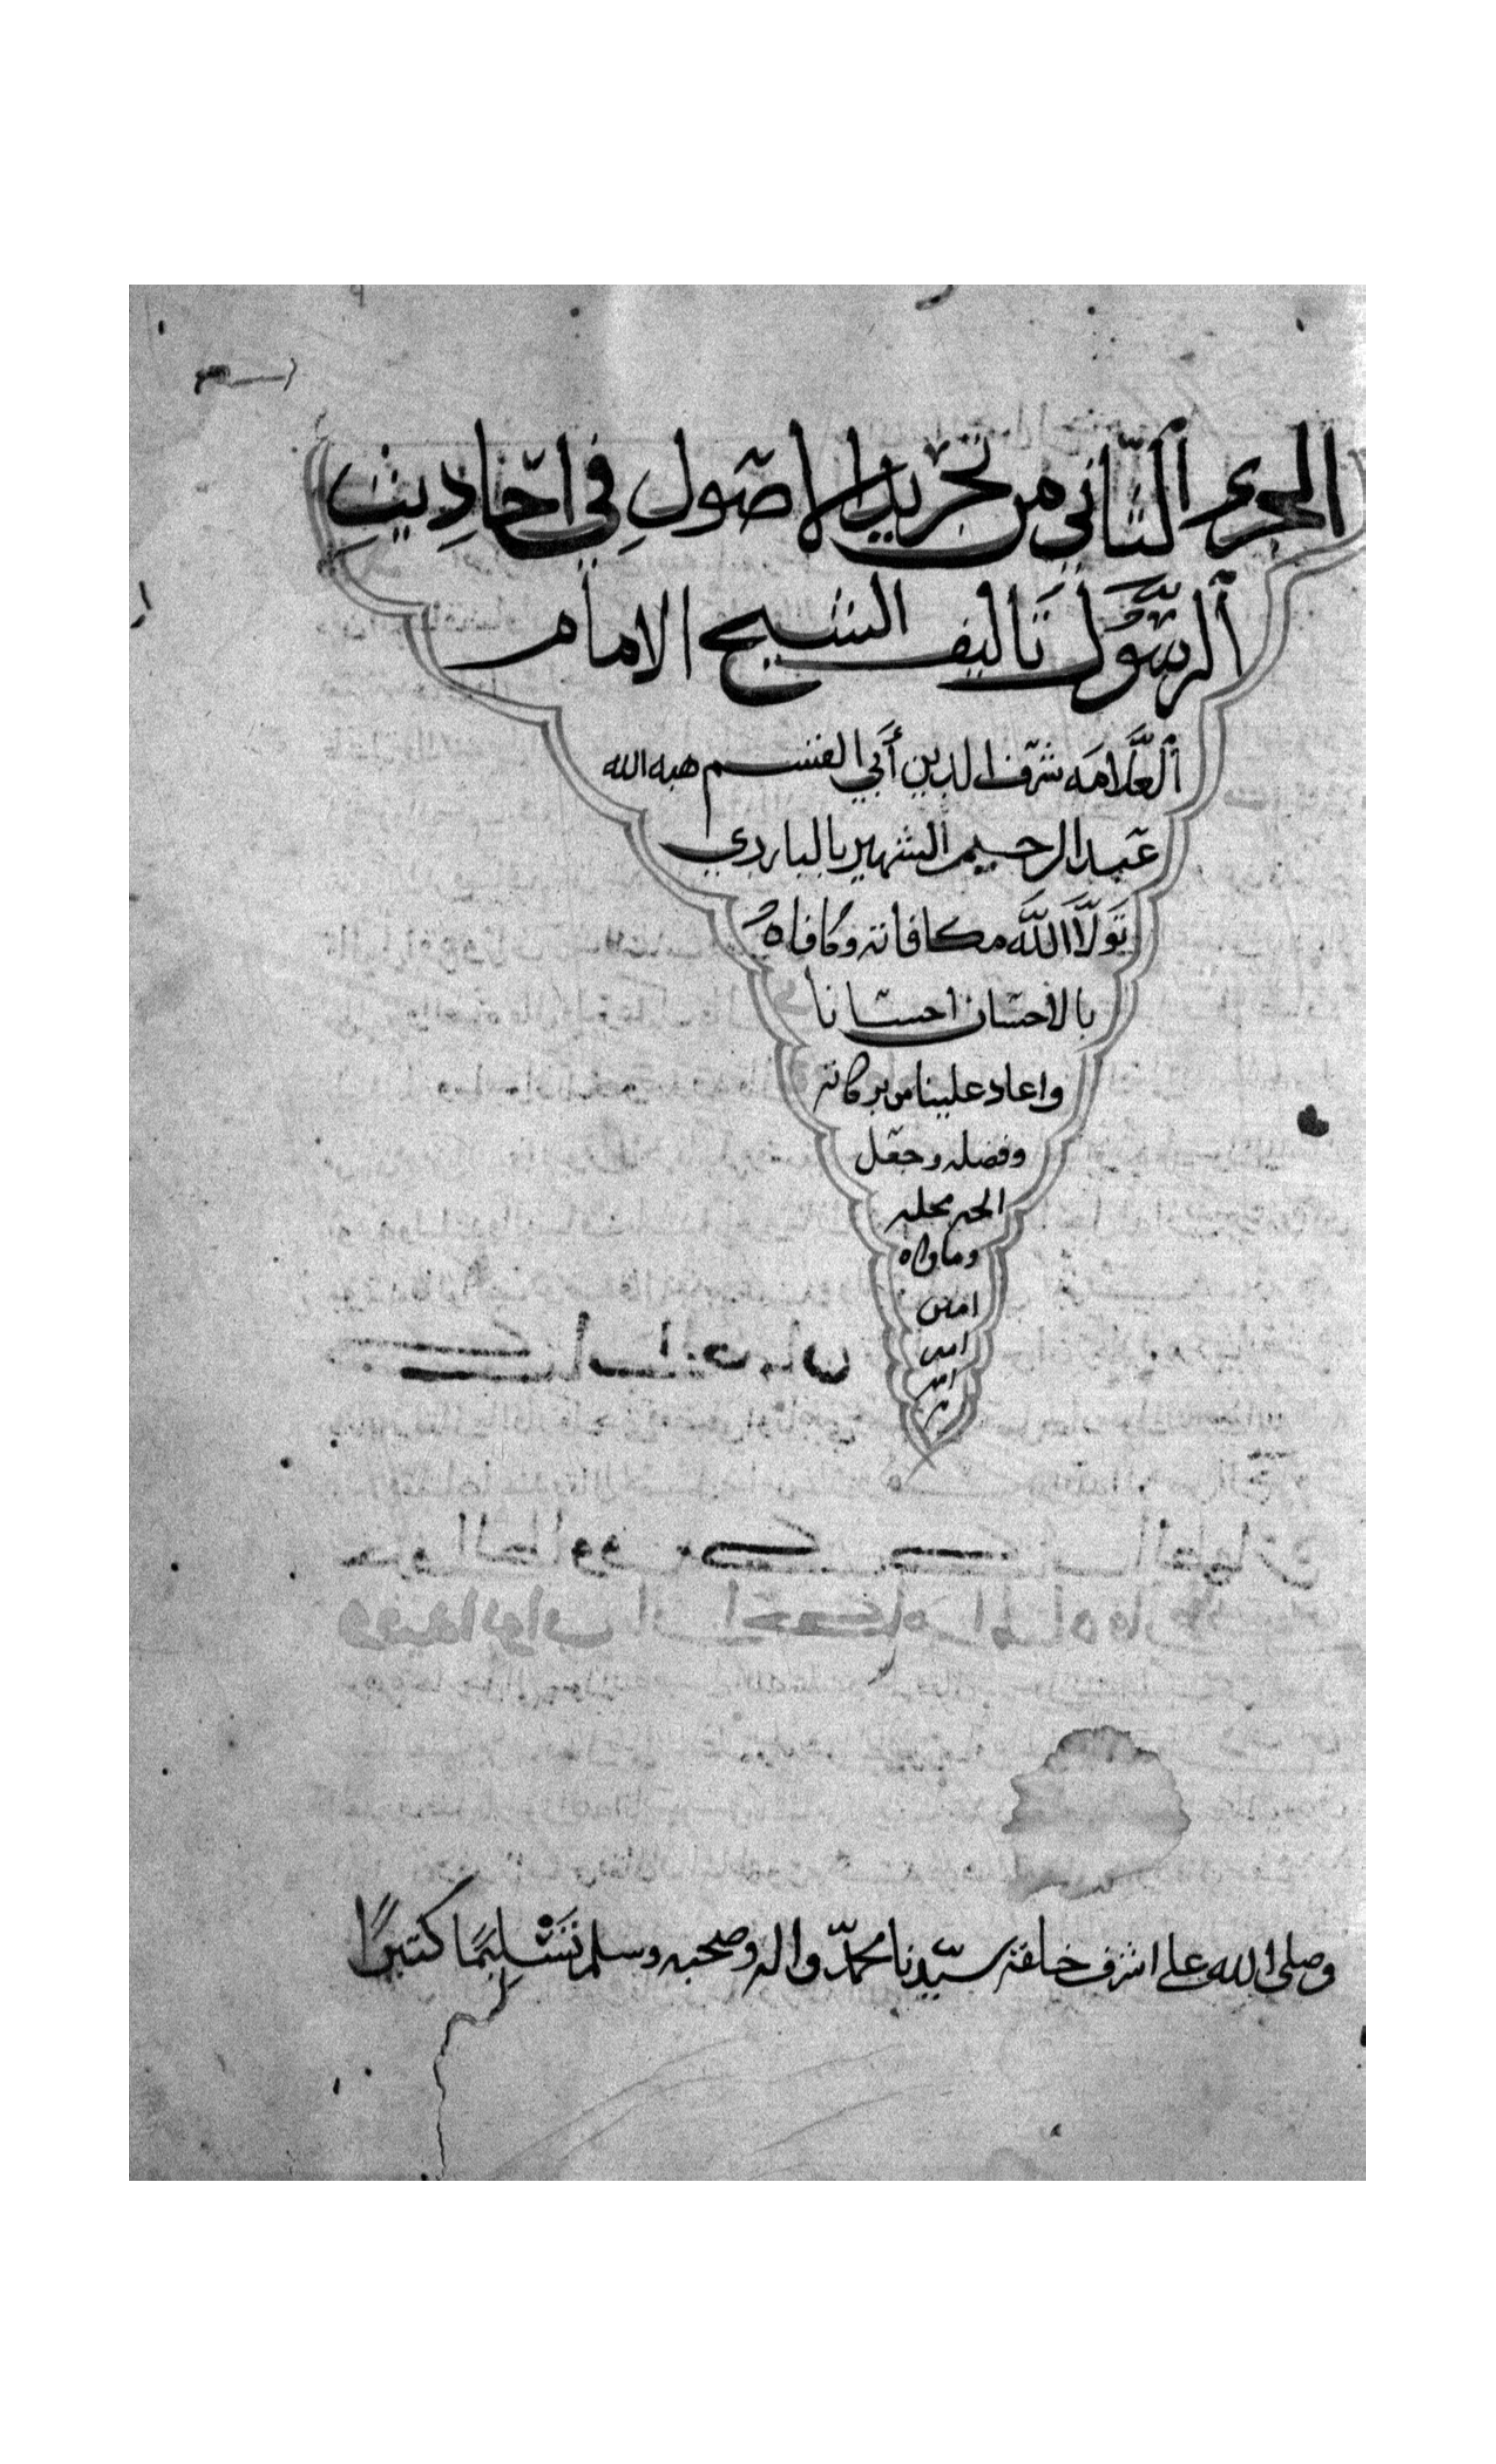 الجزء الثاني من تجريد الاصول في احاديث
الرسول تاليف الشيخ الامام
العلامه شرف الدين أبي القسم هبه الله
عبد الرحيم الشهير بالبارزي
تولا الله مكافاته وكافاه
بالاحسان احسانا
واعاد علينا من بركاته
وفضله وجعل
الجنه محله
وماواه
امين
امين
امين
وصلى الله على اشرف خلقه سيدنا محمد واله وصحبه وسلم تسليما كثيرا